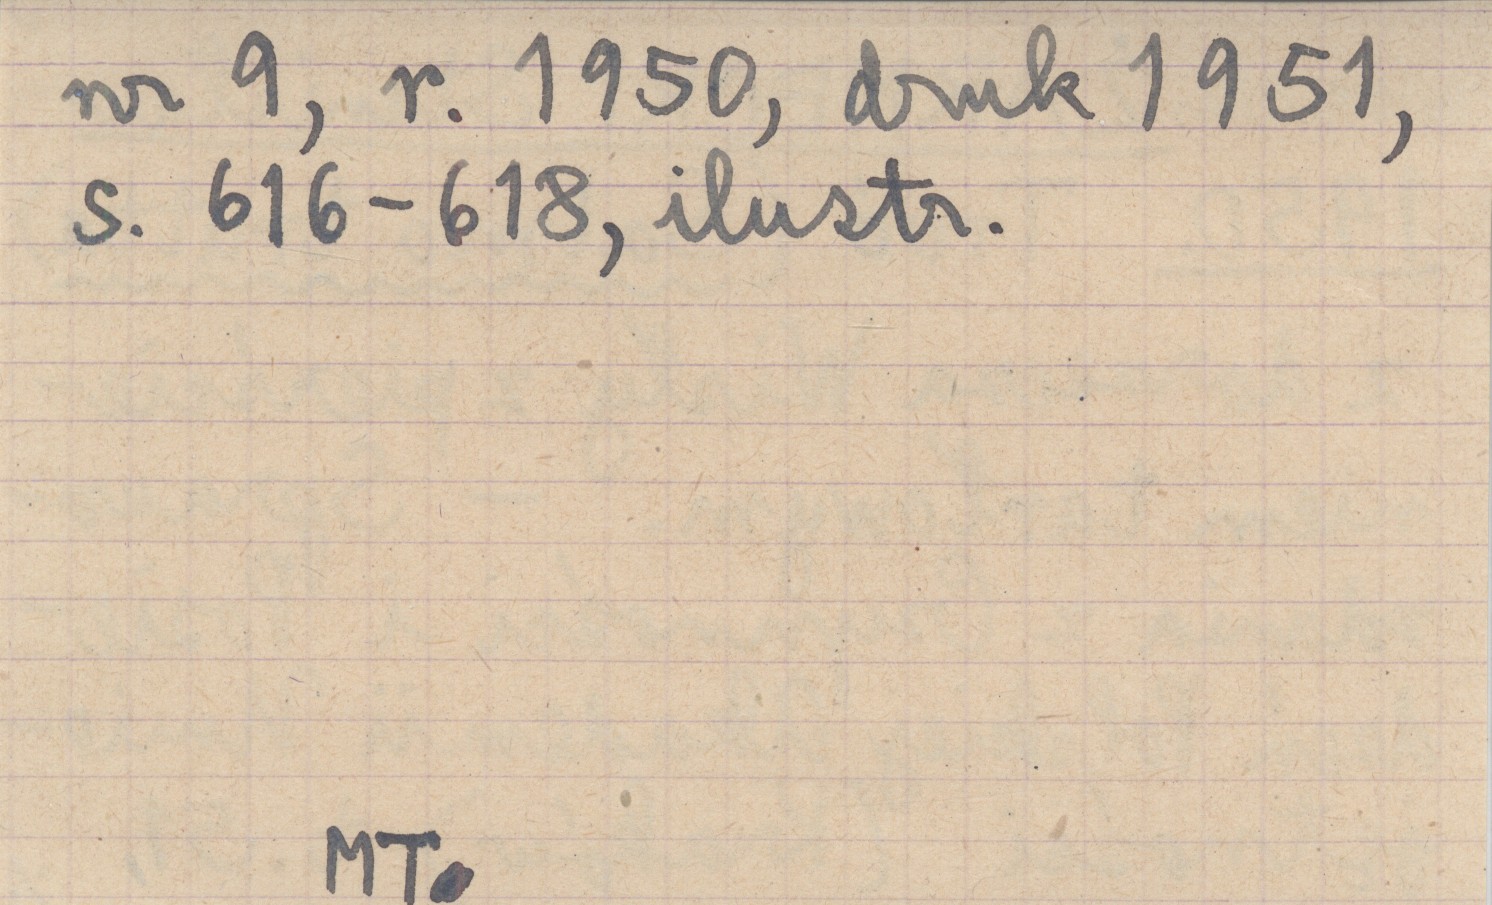 nr 9, r. 1950, druk 1951,
s. 616-618, ilustr.
MT.